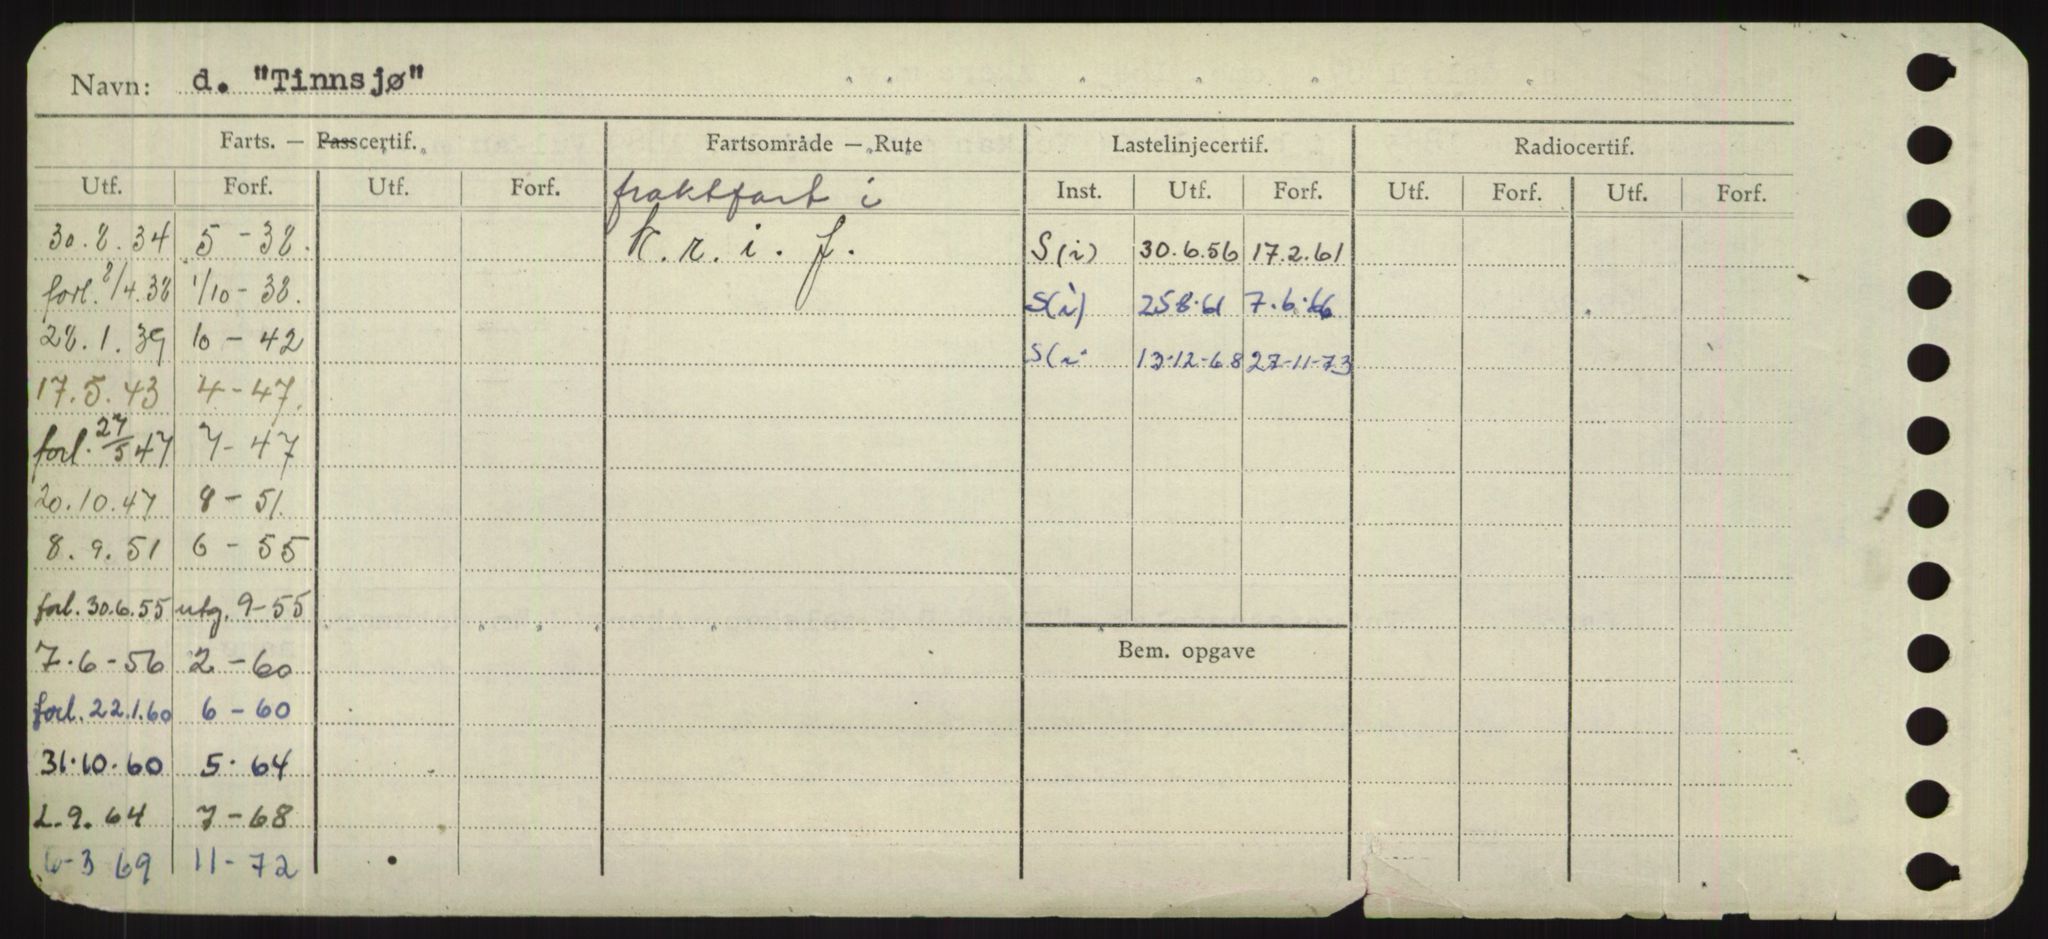 Navn: d. "Tinnsjø"
Farts. — Passcertif. Fartsområde — Rute Lastelinjecertif. Radiocertif.
Utf. Forf. Utf. Forf. fraktfart i Inst. Utf. Forf. Utf. Forf. Utf. Forf.
30.8.34 5 - 38. K.r.i.f. S(i) 30.6.56 17.2.61
forl. 8/4.38 1/10 - 38. S(i) 25.8.61 7.6.66
28.1.39 10 - 42 S(i 13-12-68 27-11-73
17.5.43 4 - 47.
forl. 27/5 47 7 - 47
20.10.47 8 - 51.
8.9.51 6 - 55
forl. 30.6.55 utg. 9-55
7.6-56 2 - 60 Bem. opgave
forl. 22.1.60 6 - 60
31.10.60 5. 64
2.9.64 7 - 68
6-3 69 11 - 72